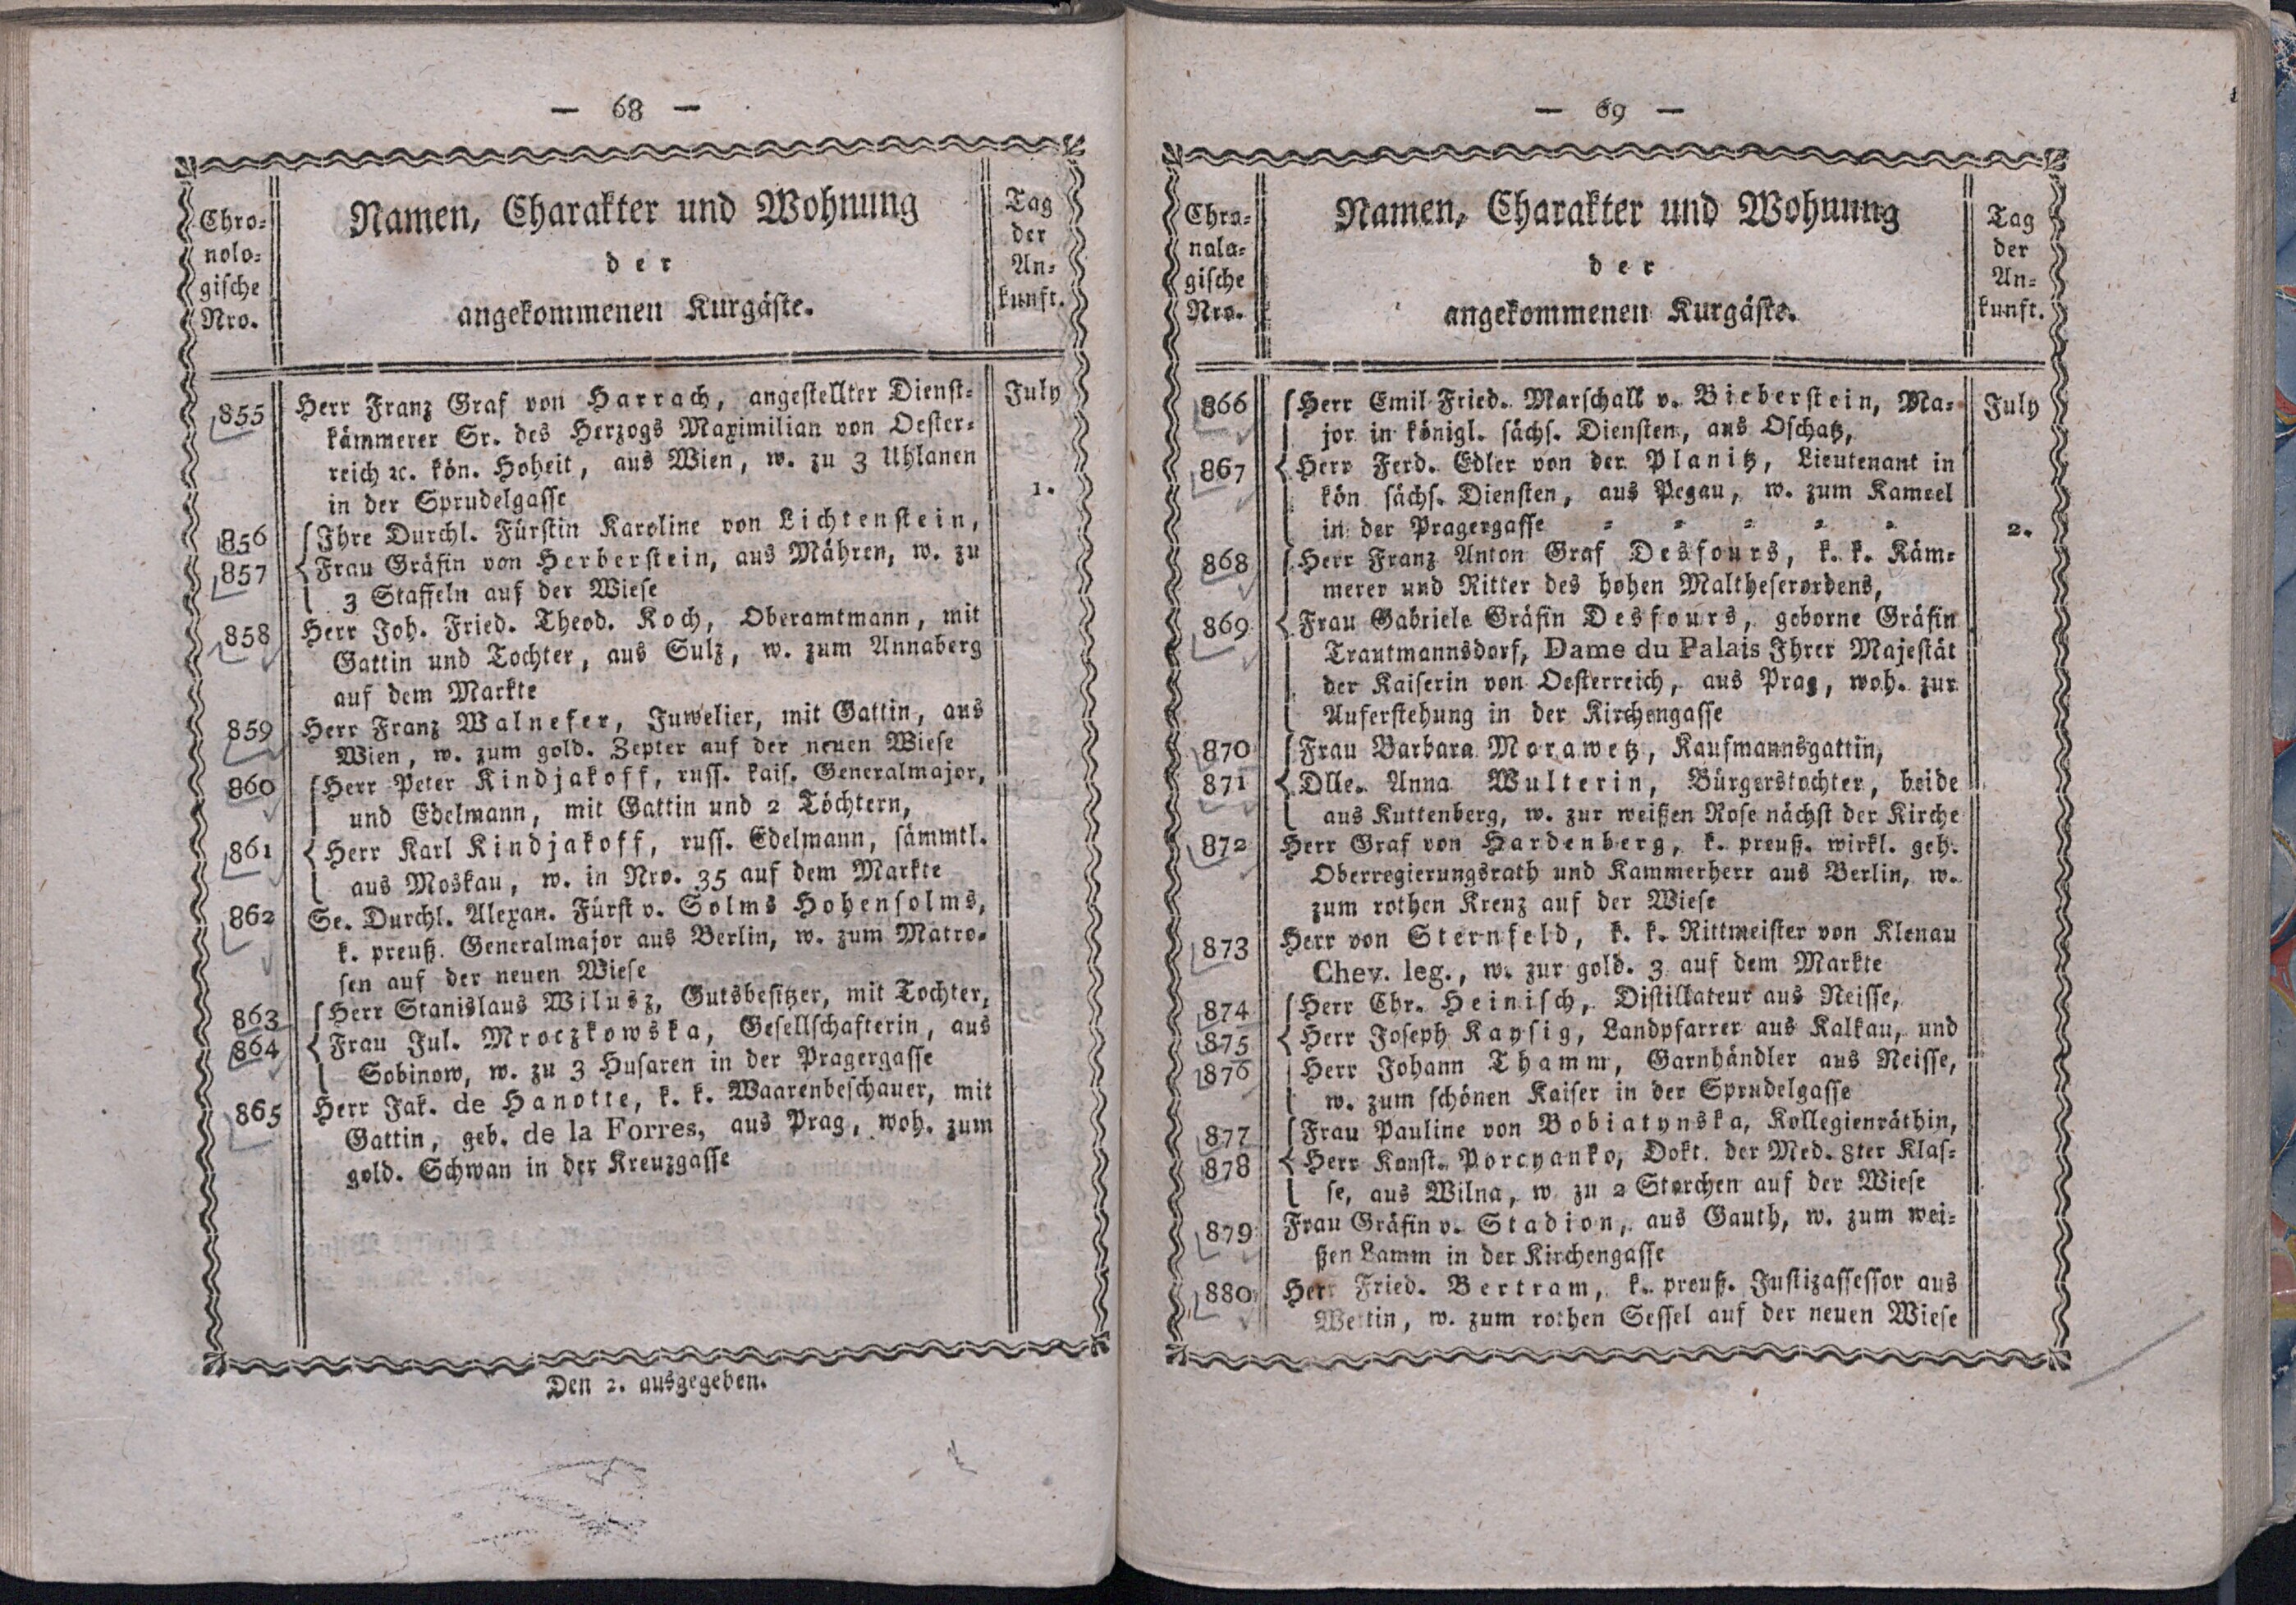 — 68 —
Chro-
nolo-
gische
Nro.
Namen, Charakter und Wohnung
der
angekommenen Kurgäste.
Tag
der
An-
kunft.
855 Herr Franz Graf von Harrach, angestellter Dienst- July
kämmerer Sr. des Herzogs Maximilian von Oester-
reich ꝛc. kön. Hoheit, aus Wien, w. zu 3 Uhlanen
in der Sprudelgasse 1.
856 Ihre Durchl. Fürstin Karoline von Lichtenstein,
857 Frau Gräfin von Herberstein, aus Mähren, w. zu
3 Staffeln auf der Wiese
858 Herr Joh. Fried. Theod. Koch, Oberamtmann, mit
Gattin und Tochter, aus Sulz, w. zum Annaberg
auf dem Markte
859 Herr Franz Walnefer, Juwelier, mit Gattin, aus
Wien, w. zum gold. Zepter auf der neuen Wiese
860 Herr Peter Kindjakoff, russ. kais. Generalmajor,
und Edelmann, mit Gattin und 2 Töchtern,
861 Herr Karl Kindjakoff, russ. Edelmann, sämmtl.
aus Moskau, w. in Nro. 35 auf dem Markte
862 Se. Durchl. Alexan. Fürst v. Solms Hohensolms,
k. preuß. Generalmajor aus Berlin, w. zum Matro-
sen auf der neuen Wiese
863 Herr Stanislaus Wilusz, Gutsbesitzer, mit Tochter,
864 Frau Jul. Mroczkowska, Gesellschafterin, aus
Sobinow, w. zu 3 Husaren in der Pragergasse
865 Herr Jak. de Hanotte, k. k. Waarenbeschauer, mit
Gattin, geb. de la Forres, aus Prag, woh. zum
gold. Schwan in der Kreuzgasse
Den 2. ausgegeben.
— 69 —
Chro-
nolo-
gische
Nro.
Namen, Charakter und Wohnung
der
angekommenen Kurgäste.
Tag
der
An-
kunft.
866 Herr Emil Fried. Marschall v. Bieberstein, Ma- July
jor in königl. sächs. Diensten, aus Oschatz,
867 Herr Ferd. Edler von der Planitz, Lieutenant in
kön sächs. Diensten, aus Pegau, w. zum Kameel
in der Pragergasse = = = = = 2.
868 Herr Franz Anton Graf Desfours, k. k. Käm-
merer und Ritter des hohen Maltheserordens,
869 Frau Gabriele Gräfin Desfours, geborne Gräfin
Trautmannsdorf, Dame du Palais Ihrer Majestät
der Kaiserin von Oesterreich, aus Prag, woh. zur
Auferstehung in der Kirchengasse
870 Frau Barbara Morawetz, Kaufmannsgattin,
871 Dlle. Anna Wulterin, Bürgerstochter, beide
aus Kuttenberg, w. zur weißen Rose nächst der Kirche
872 Herr Graf von Hardenberg, k. preuß. wirkl. geh.
Oberregierungsrath und Kammerherr aus Berlin, w.
zum rothen Kreuz auf der Wiese
873 Herr von Sternfeld, k. k. Rittmeister von Klenau
Chev. leg., w. zur gold. 3 auf dem Markte
874 Herr Chr. Heinisch, Distillateur aus Neisse,
875 Herr Joseph Kaysig, Landpfarrer aus Kalkau, und
876 Herr Johann Thamm, Garnhändler aus Neisse,
w. zum schönen Kaiser in der Sprudelgasse
877 Frau Pauline von Bobiatynska, Kollegienräthin,
878 Herr Konst. Porcyanko, Dokt. der Med. 8ter Klas-
se, aus Wilna, w zu 2 Storchen auf der Wiese
879 Frau Gräfin v. Stadion, aus Gauth, w. zum wei-
ßen Lamm in der Kirchengasse
880 Herr Fried. Bertram, k. preuß. Justizassessor aus
Wettin, w. zum rothen Sessel auf der neuen Wiese